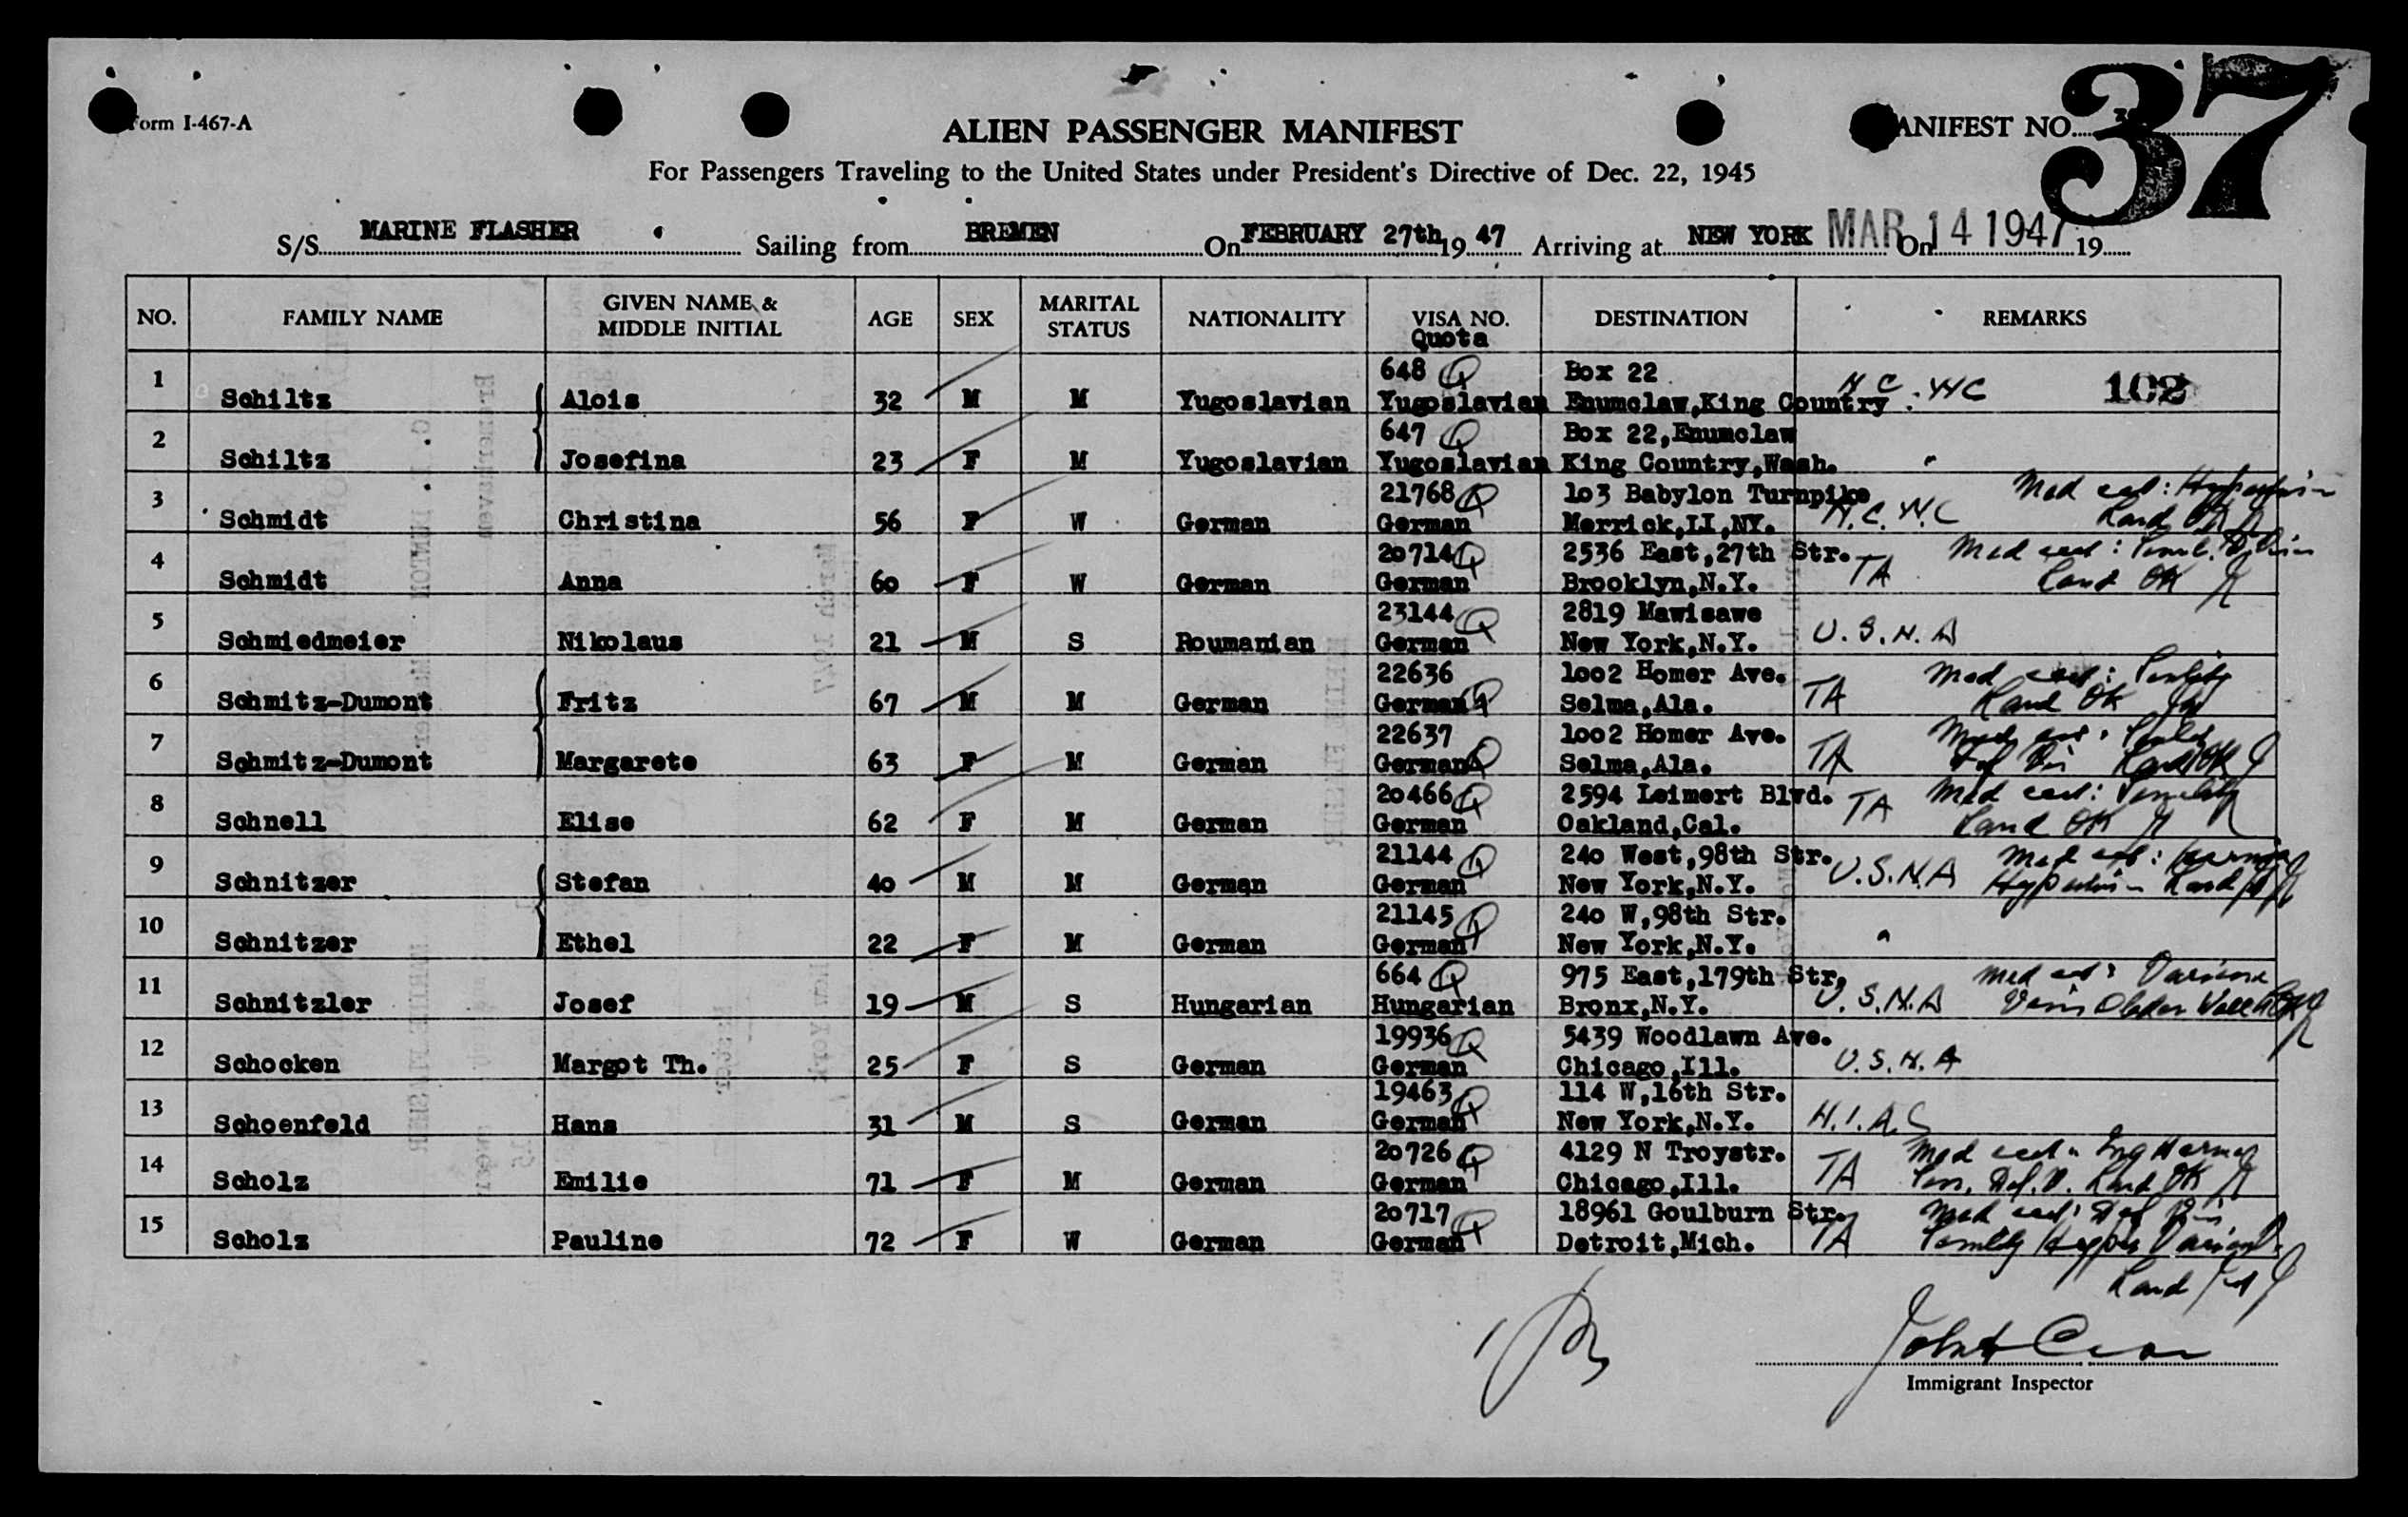 Form I-467-A
ALIEN PASSENGER MANIFEST
MANIFEST NO.
37
For Passengers Traveling to the United States under President's Directive of Dec. 22, 1945
S/S MARINE FLASHER Sailing from BREMEN On FEBRUARY 27th 19 47 Arriving at NEW YORK On MAR 14 1947 19
NO. FAMILY NAME GIVEN NAME & MIDDLE INITIAL AGE SEX MARITAL STATUS NATIONALITY VISA NO. Quota DESTINATION REMARKS
1 648 Q Box 22
Schiltz Alois 32 M M Yugoslavian Yugoslavian Enumclaw,King Country N C. WC 102
2 647 Q Box 22,Enumclaw
Schiltz Josefina 23 F M Yugoslavian Yugoslavian King Country,Wash. "
3 21768 Q 103 Babylon Turnpike Med cert:
Schmidt Christina 56 F W German German Merrick,LI,NY. N.C.W.C Land OK
4 20714 Q 2536 East,27th Str. Med cert:
Schmidt Anna 60 F W German German Brooklyn,N.Y. TA Land OK
5 23144 Q 2819 Mawisawe
Schmiedmeier Nikolaus 21 M S Roumanian German New York,N.Y. U.S.N.A
6 22636 1002 Homer Ave. Med cert: Senility
Schmitz-Dumont Fritz 67 M M German German Q Selma,Ala. TA Land OK
7 22637 1002 Homer Ave. Med cert:
Schmitz-Dumont Margarete 63 F M German German Q Selma,Ala. TA Land OK
8 20466 Q 2594 Leimert Blvd. Med cert: Senility
Schnell Elise 62 F M German German Oakland,Cal. TA Land OK
9 21144 Q 240 West,98th Str. Med cert:
Schnitzer Stefan 40 M M German German New York,N.Y. U.S.N.A Land
10 21145 Q 240 W,98th Str.
Schnitzer Ethel 22 F M German German New York,N.Y. "
11 664 Q 975 East,179th Str. Med cert:
Schnitzler Josef 19 M S Hungarian Hungarian Bronx,N.Y. U.S.N.A
12 19936 Q 5439 Woodlawn Ave.
Schocken Margot Th. 25 F S German German Chicago,Ill. U.S.N.A
13 19463 Q 114 W,16th Str.
Schoenfeld Hans 31 M S German German New York,N.Y. H.I.A.S
14 20726 Q 4129 N Troystr. Med cert
Scholz Emilie 71 F M German German Chicago,Ill. TA Sen. Def. V. Land OK
15 20717 Q 18961 Goulburn Str. Med cert: Def
Scholz Pauline 72 F W German German Detroit,Mich. TA Senility
Land
Immigrant Inspector